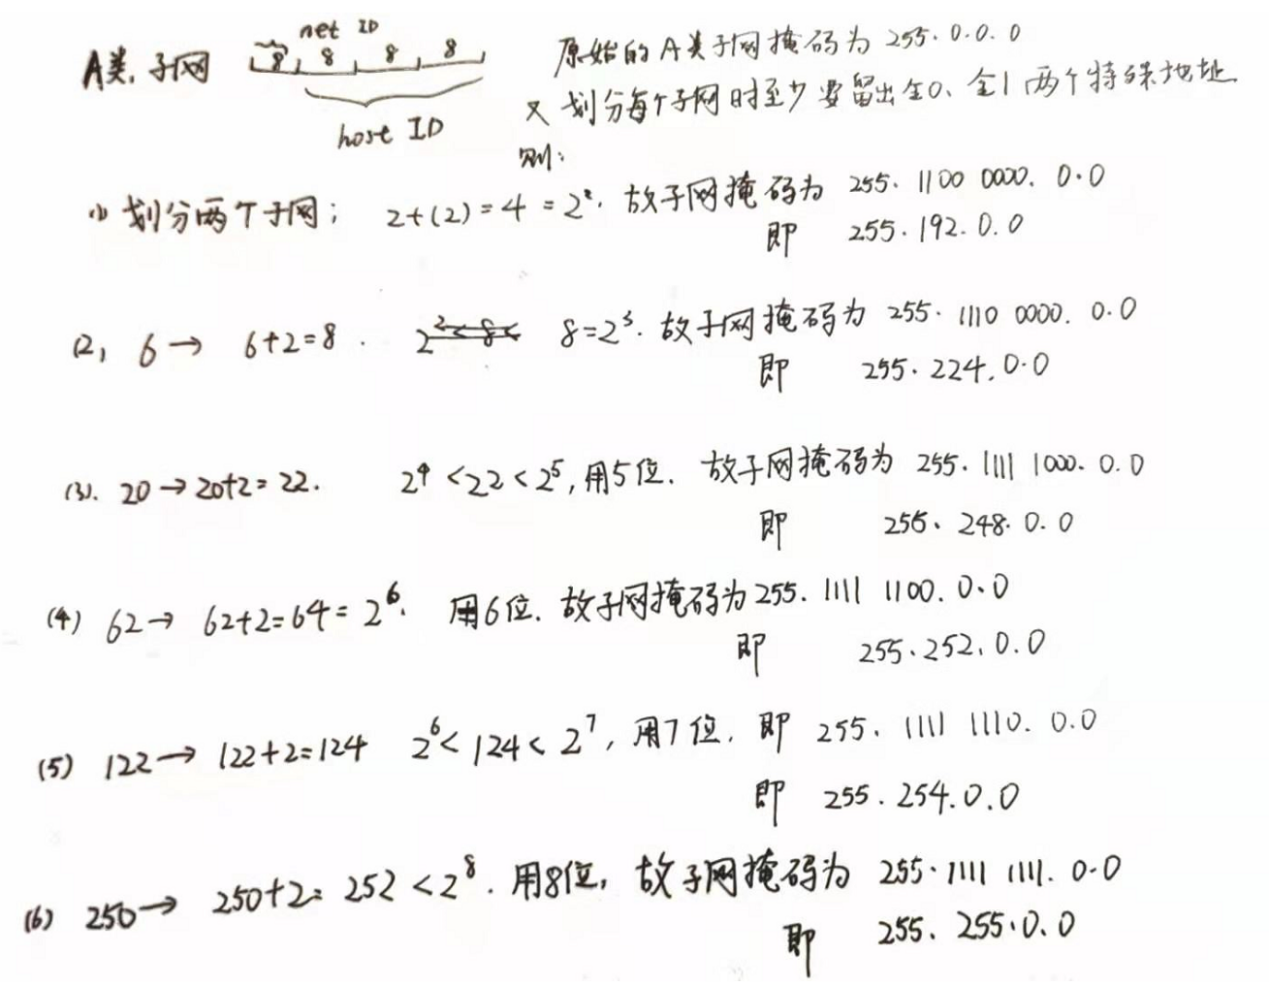 net ID
A类,子网 8 8 8 8 原始的A类子网掩码为 255.0.0.0
host ID 又划分每个子网时至少要留出全0、全1两个特殊地址
则:
(1) 划分两个子网; 2+(2)=4=2². 故子网掩码为 255. 1100 0000. 0.0
即 255.192.0.0
(2) 6→ 6+2=8. 8=2³. 故子网掩码为 255. 1110 0000. 0.0
即 255.224.0.0
(3). 20→20+2=22. 2⁴<22<2⁵,用5位. 故子网掩码为 255. 1111 1000. 0.0
即 255.248.0.0
(4) 62→ 62+2=64=2⁶. 用6位. 故子网掩码为255. 1111 1100. 0.0
即 255.252.0.0
(5) 122→ 122+2=124 2⁶<124<2⁷,用7位. 即 255. 1111 1110. 0.0
即 255.254.0.0
(6) 250→ 250+2=252<2⁸. 用8位, 故子网掩码为 255.1111 1111. 0.0
即 255.255.0.0